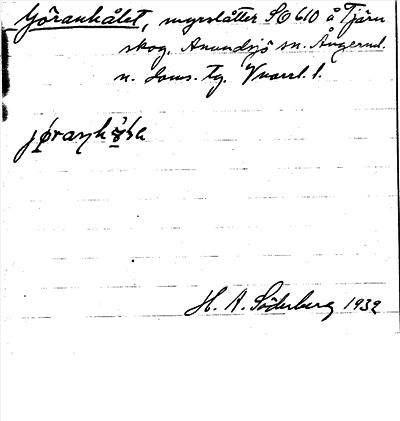 Göranhålet, myrslåtter SO 610 å Tjärn
skog, Anundsjö sn. Ångerml.
n. doms. tg.
jøranhå̀la
H. A. Söderberg 1932